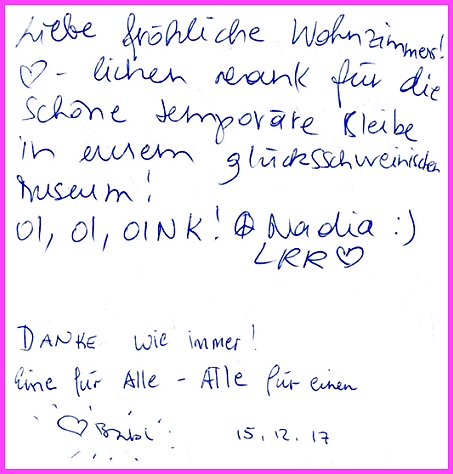 Liebe fröhliche Wohnzimmers!
♡ - lichen Dank für die
schöne temporäre Bleibe
in eurem glücksschweinischen
Museum!
OI, OI, OINK! ☮ Nadia :)
LRR ♡
DANKE wie immer!
Eine für Alle - Alle für einen
♡ Babsi 15.12.17